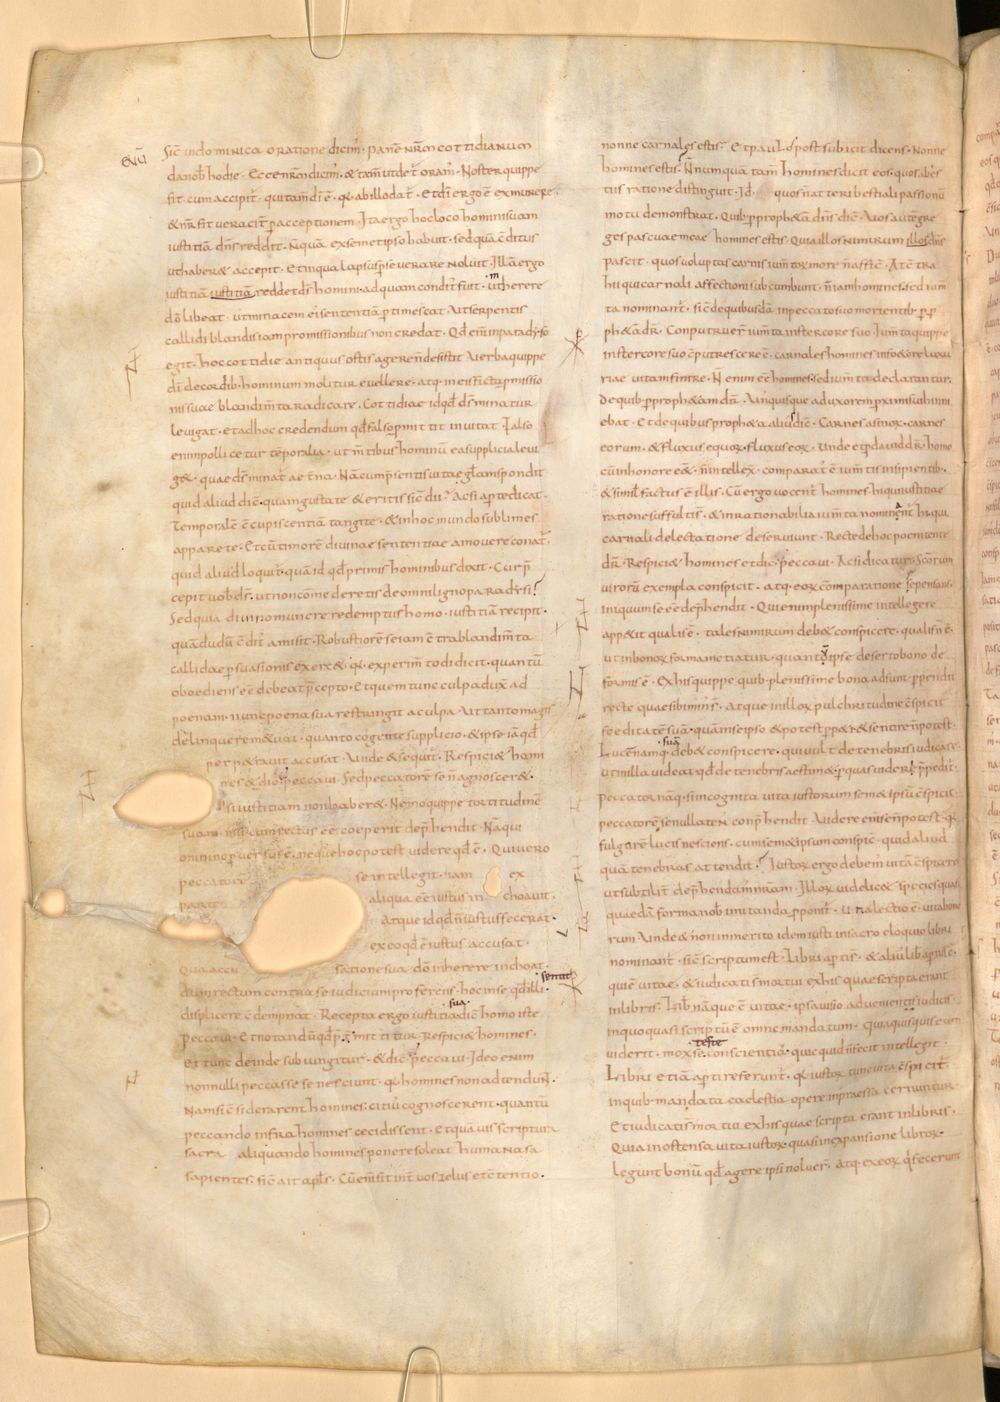 Sic̄ indominica oratione dicim̄. panē nr̄m cottidianum
danob̄ hodie. Ecce nr̄m dicim̄. & tam̄ ut det̄ oram̄. Noster quippe
fit. cum accipit̄. qui tam̄ dī ē. q̄a ab illo dat̄. Et dī ergo ē ex munere.
& nr̄m fit veracit̄ p acceptionem. Ita ergo hoc loco homini suam
iustitiā dn̄s reddit. n̄ quā ex semet ipso habuit. sed quā c̄ditus
ut haber& accepit. Et in qua lapsus pseverare noluit. Illā ergo
iustitiā iustitiā reddet ds̄ homini. ad quam condit̄ fuit. ut inherere
dō libeat. ut minacem ei sententiā ptimescat. Ut serpentis
callidi blandis iam promissionibus non credat. Qd̄ eni͞m in paradyso
egit. hoc cottidie antiquus ostis agere n̄ desistit. Verba quippe
dī de cordib. hominum molitur evellere. atq. in eis ficta pmissio
nis suae blandim̄ta radicare. Cottidie id qd̄ ds̄ minatur
levigat. et ad hoc credendum qd̄ falso pmittit invitat. Falso
eni͞m pollicetur tēporalia. ut m̄tibus hominū ea supplicia levi
g&. quae ds̄ minat̄ aet̄na. Nā cum psentis vitae gl̄am spondit
quid aliud dic̄. quam gustate & eritis sic̄ dii. Ac si apte dicat.
Temporale c̄cupiscentiā tangite. & in hoc mundo sublimes
apparete. Et cū timorē divinae sententiae amovere conat̄.
quid aliud loquit̄. quā id qd̄ primis hominibus dixit. Cur p̄
cepit vob̄ ds̄. ut non comederetis de omni ligno paradysi?
Sed quia divino munere redemptus homo. iustitiā recipit.
quā dudū c̄dit̄ amisit. Robustiorē se iam c̄tra blandim̄ta
callidae psuasionis exerc&. q̄a experim̄to didicit. quantū
oboediens eē debeat pcepto. Et quem tunc culpa dux̄ ad
poenam. nunc poena sua restringit a culpa. Ut tanto magis
delinquere m&uat. quanto cogente supplicio. & ipse iā qd̄
perp&ravit accusat. Unde & sequit̄. Respici& homi
nes & dic& peccavi. Sed peccatorē se n̄ agnoscer&.
si iustitiam non haber&. Nemo quippe tortitudinē
suam. nisi cum rectus eē coeperit deprehendit. Nā qui
omnino pversus ē. neque hoc potest videre qd̄ ē. Qui vero
peccatorē se intellegit. iam ex
parte aliqua eē iustus inchoavit.
Atque id qd̄ n̄ iustus fecerat.
ex eo qd̄ ē iustus accusat.
Qua accusatione sua dō inherere inchoat.
dum rectum contra se iudicium proferens. hoc in se qd̄ illi. sentit
displicere c̄dempnat. Recepta ergo iustitia sua dic̄ homo iste
peccavi. Et notandū qd̄ pmittitur. Respici& homines.
et tunc deinde subiungitur. & dic̄ peccavi. Ideo enim
nonnulli peccasse se nesciunt. q̄a homines non adtendunt.
Nam si c̄siderarent homines: citius cognoscerent. quantū
peccando infra homines cecidissent. Et quāvis scriptura
sacra aliquando homines ponere soleat humana sa
pientes: sic̄ ait apl̄s. Cum̄ sit int̄ vos zelus et c̄tentio.
nonne carnales estis? Et paulo post subicit dicens. Nonne
homines estis? Nnumquā tam̄ homines dicit eos. quos ab es
tiis ratione distinguit. Id quos n̄ at̄eri bestiali passionū
motu demonstrat. Quib. p proph&ā dn̄s dic̄. Vos autē gre
ges pascuae meae homines estis. Quia illos nimirum illos dn̄s
pascit. quos voluptas carnis ium̄toz more n̄ afficit. At c̄tra
hi qui carnali affectioni subcumbunt. n̄ iam homines. sed ium̄
ta nominant̄. sic̄ de quibusdā in peccato suo morientib. p p
ph&ā dr̄. Conputruer̄ ium̄ta in stercore suo. Ium̄ta quippe
in stercore suo c̄putrescere ē. carnales homines in foetore luxu
riae vitam finire. N̄ enim eē homines. sed ium̄ta declarantur.
de quib. p proph&am dr̄. Unusquisque ad uxorem pximi sui hinni
ebat. Et de quibus proph&a alius dic̄. Carnes asinoz. carnes
eorum. & fluxus equoz. fluxus eoz. Unde et p david dr̄. homo
cū in honore e&. n̄ intellex̄. comparat̄ ē ium̄tis insipientib.
& simil̄ factus ē illis. Cū ergo vocent̄ homines. hi qui iustitiae
ratione suffulti s̄. & inrationabilia ium̄ta nominant̄. hi qui
carnali delectatione deserviunt. Recte de hoc poenitente
dr̄. Respici& homines et dic̄. peccavi. Ac si dicatur. Scōrum
virorū exempla conspicit. atq. eoz c̄mparatione se pensans.
iniquum se eē dephendit. Qui enim plenissime intellegere
app&it qualis ē. tales nimirum deb& conspicere. qualis n̄ ē.
ut in bonoz forma metiatur. quantū ipse deserto bono de
formis ē. Ex his quippe quib. plenissime bona adsunt. ppendit
recte quae sibi minus s̄. Atque in illoz pulchritudine c̄spicit
foeditatē suā. quam in se ipso & potest ppeti. & sentire n̄ potest.
Lucē namq. deb& conspicere. qui vult de tenebris iudicare.
ut in illa videat qd̄ de tenebris aestim&. p quas videre pp̄edit̄.
peccator nāq. si incognita vita iustorum sem& ipsū c̄spicit.
peccatorē se nullaten̄ conphendit. Videre eni͞m se n̄ potest. q̄a
fulgorē lucis nesciens. cum sem& ipsum conspic̄. quid aliud
quā tenebras attendit? Iustoz ergo debem̄ vitā c̄spicere
ut subtilit̄ dephendamus nr̄am. Illoz videlic& species quasi
quaedā forma nob̄ imitanda pponit̄. Viva lectio ē. vita bono
rum. Unde & non inmerito idem iusti in sacro eloquio libri
nominant̄. sic̄ scriptum est. Libri apti s̄. & alius lib̄ aptus ē.
qui ē vitae. & iudicati s̄ mortui ex his quae scripta erant
in libris. Lib̄ nāque ē vitae. ipsa visio advenientis iudicis.
in quo quasi scriptū ē omne mandatum. quia quisquis eum
viderit. mox se teste conscientia. quicquid n̄ fecit intellegit.
Libri etiā apti referunt̄. q̄a iustoz tunc vita c̄spicit̄.
in quib. mandata caelestia opere inpraessa cernuntur.
Et iudicati s̄ mortui ex his quae scripta erant in libris.
Quia in ostensa vita iustoz. quasi in expansione libroz.
legunt bonū qd̄ agere ipsi noluer̄. Atq. ex eoz q̄ fecerunt